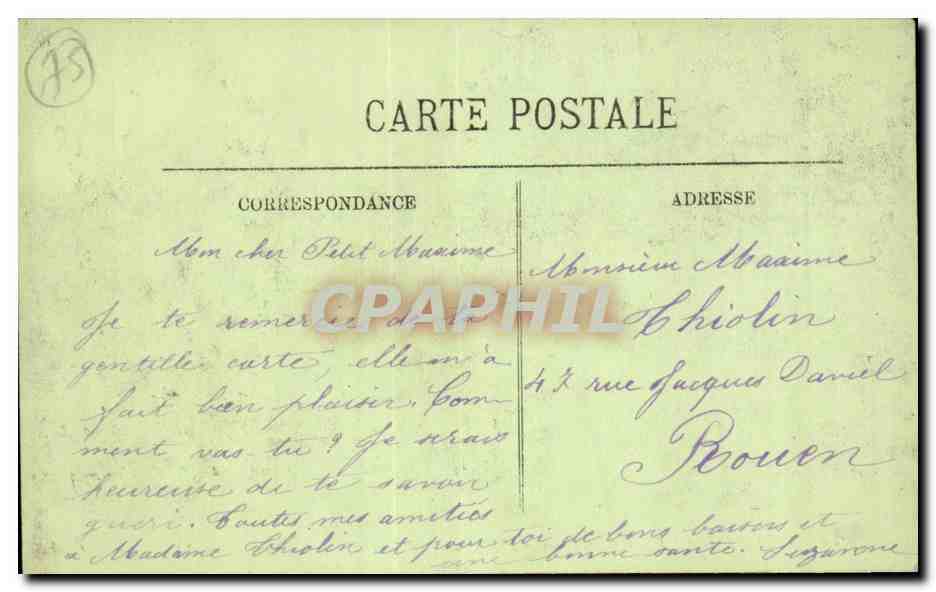 75
CARTE POSTALE
CORRESPONDANCE
Mon cher Petit Maxime
Je te remercie de ta
gentille carte, elle m'a
fait bien plaisir. Com-
ment vas-tu ? Je serais
heureuse de te savoir
guéri. Toutes mes amitiés
à Madame Thiolin et pour toi de bons baisers et
une bonne santé. Suzanne
ADRESSE
Monsieur Maxime
Thiolin
47 rue Jacques Daviel
Rouen
CPAPHIL